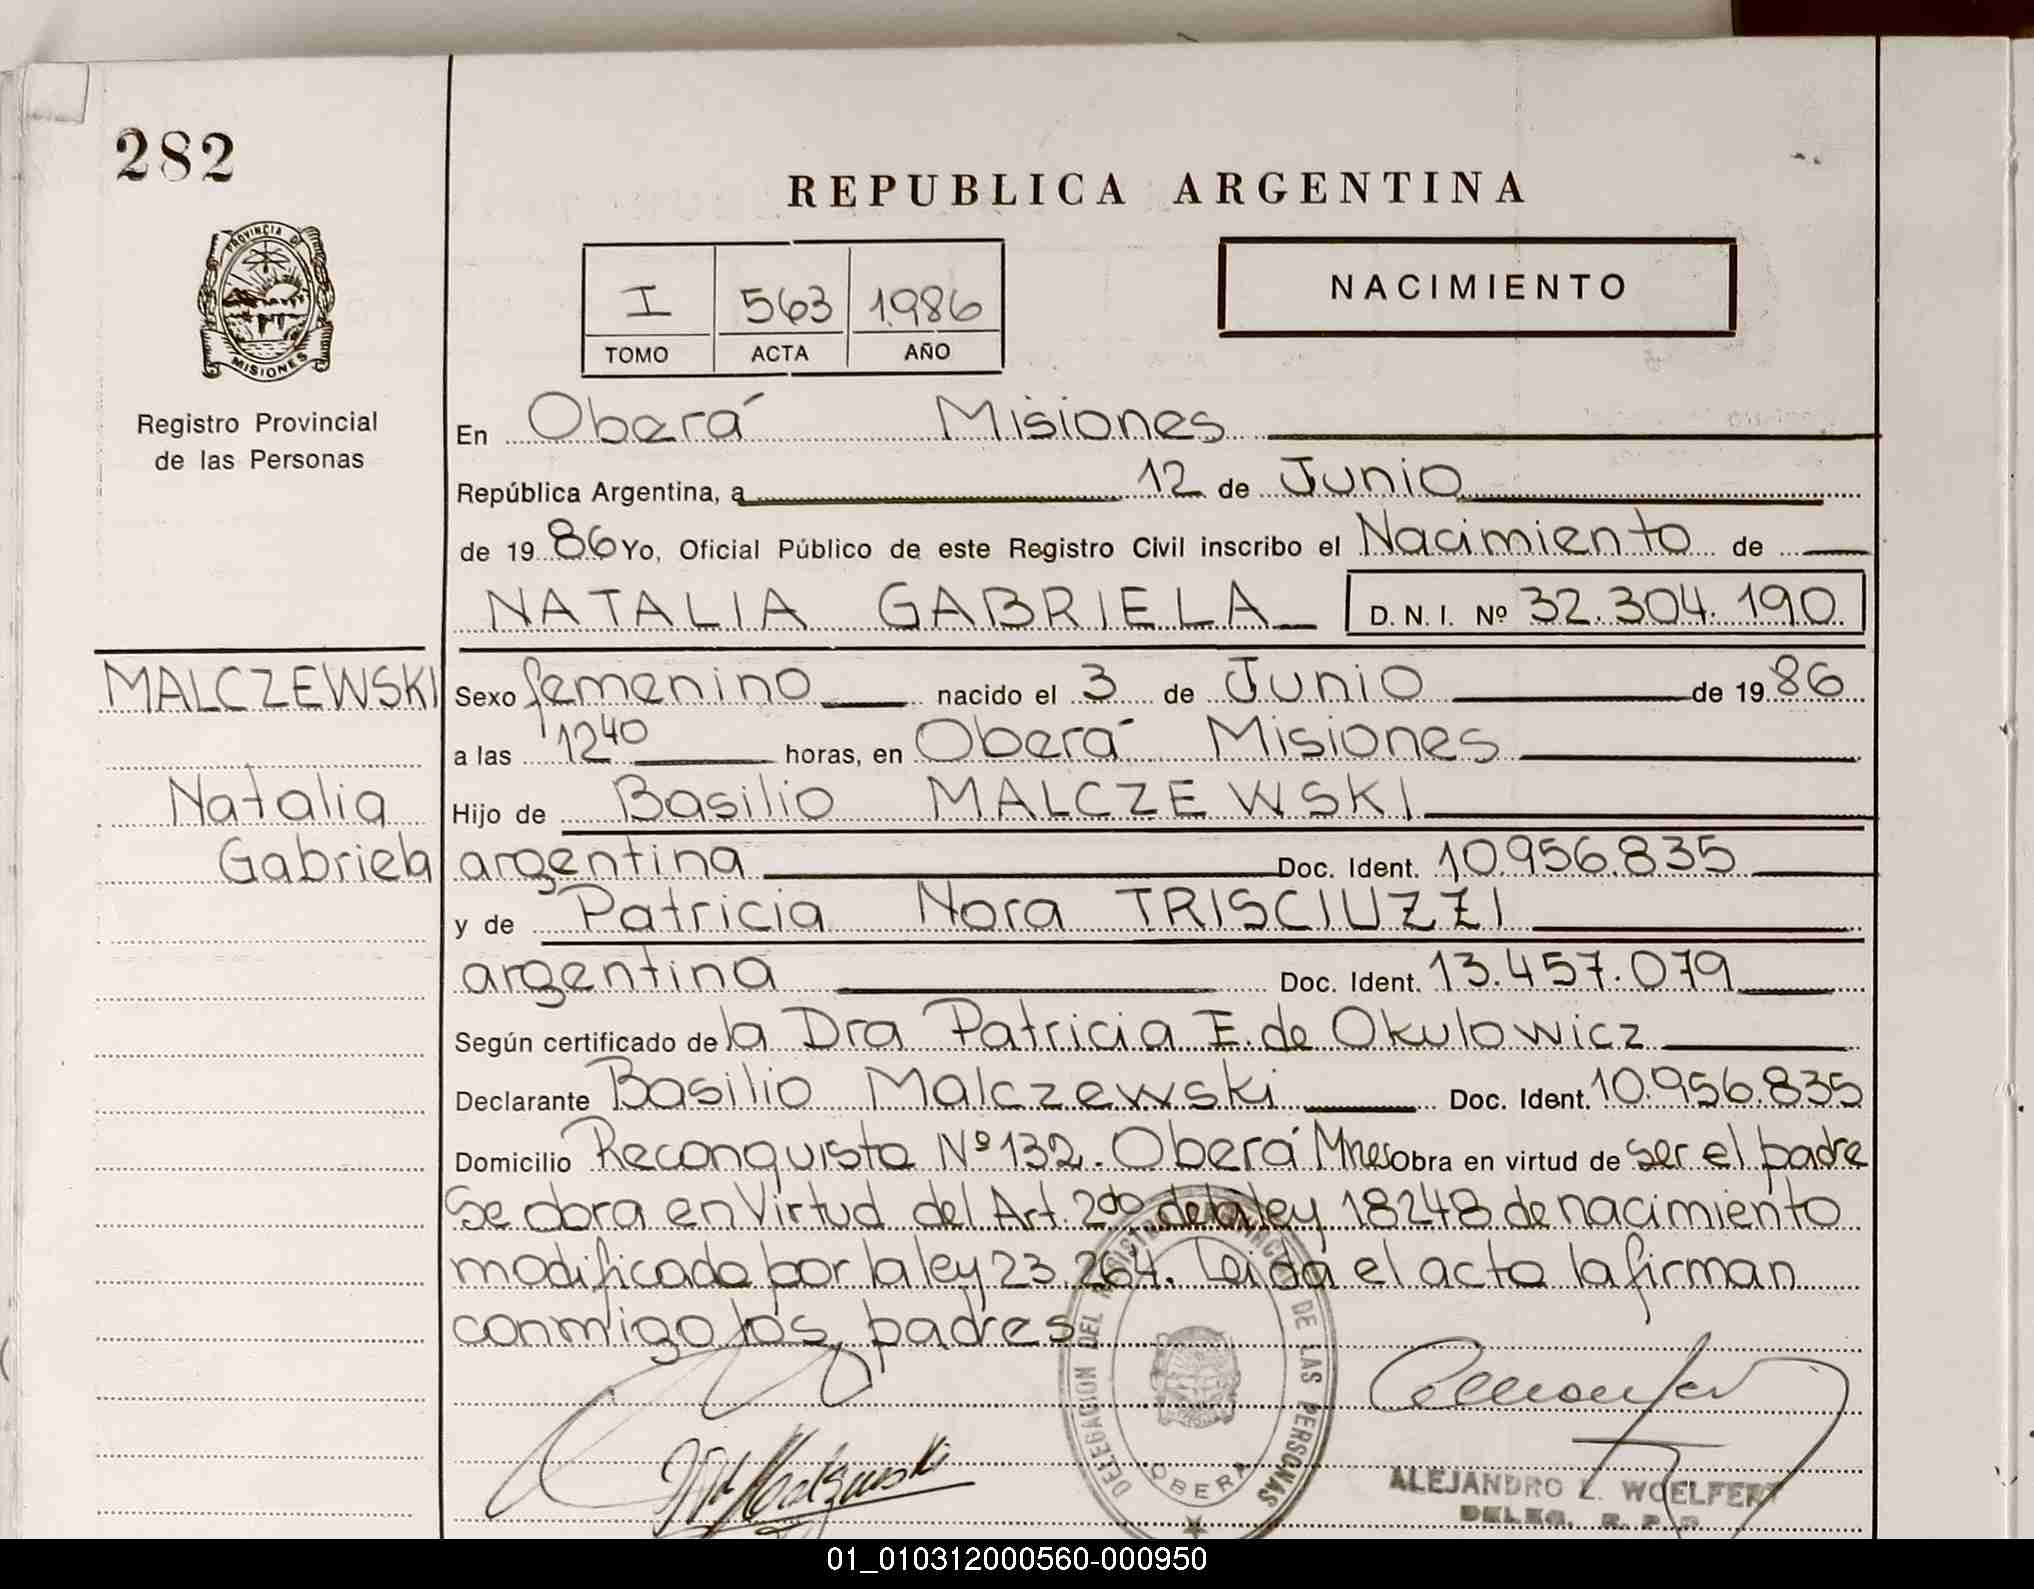 282
REPUBLICA ARGENTINA
PROVINCIA DE
MISIONES
Registro Provincial
de las Personas
I 563 1986
TOMO ACTA AÑO
NACIMIENTO
En Oberá Misiones
República Argentina, a 12 de Junio
de 1986 Yo, Oficial Público de este Registro Civil inscribo el Nacimiento de
NATALIA GABRIELA D. N. I. Nº 32.304.190
MALCZEWSKI
Natalia
Gabriela
Sexo femenino nacido el 3 de Junio de 1986
a las 12 40 horas, en Oberá Misiones
Hijo de Basilio MALCZEWSKI
argentina Doc. Ident. 10.956.835
y de Patricia Nora TRISCIUZZI
argentina Doc. Ident. 13.457.079
Según certificado de la Dra Patricia E. de Okulowicz
Declarante Basilio Malczewski Doc. Ident. 10.956.835
Domicilio Reconquista Nº 132. Oberá Mnes Obra en virtud de ser el padre
Se obra en Virtud del Art. 2do de la ley 18248 de nacimiento
modificado por la ley 23.264. Leida el acta la firman
conmigo los padres
DELEGACION DEL REGISTRO PROVINCIAL DE LAS PERSONAS
OBERA
ALEJANDRO L. WOELFERT
DELEG. R. P. P.
01_010312000560-000950